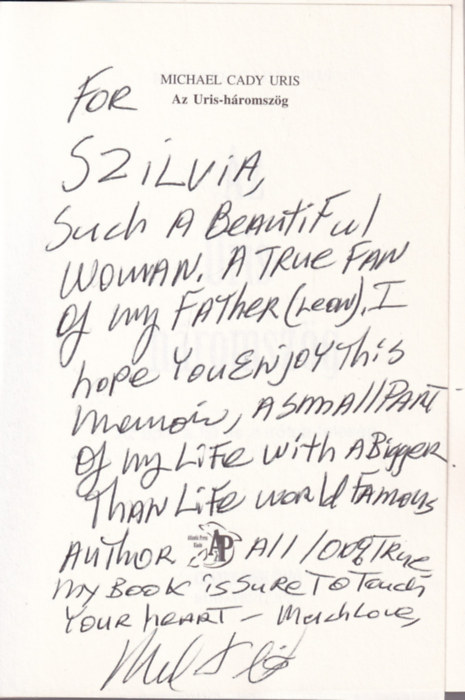 MICHAEL CADY URIS
Az Uris-háromszög
FOR
SZiLViA,
Such A BEAUtiFul
WOMAN. A TRUE FAN
Of my FATher (Leon). I
hope YOU ENJOY this
memoir, A SmAll PART
Of my LiFe with A BiggeR
ThAN LiFe woRld FAmous
AUTHOR AP All 100% TRue
my BOOK is SuRe TO Touch
YOUR heART – Much Love,